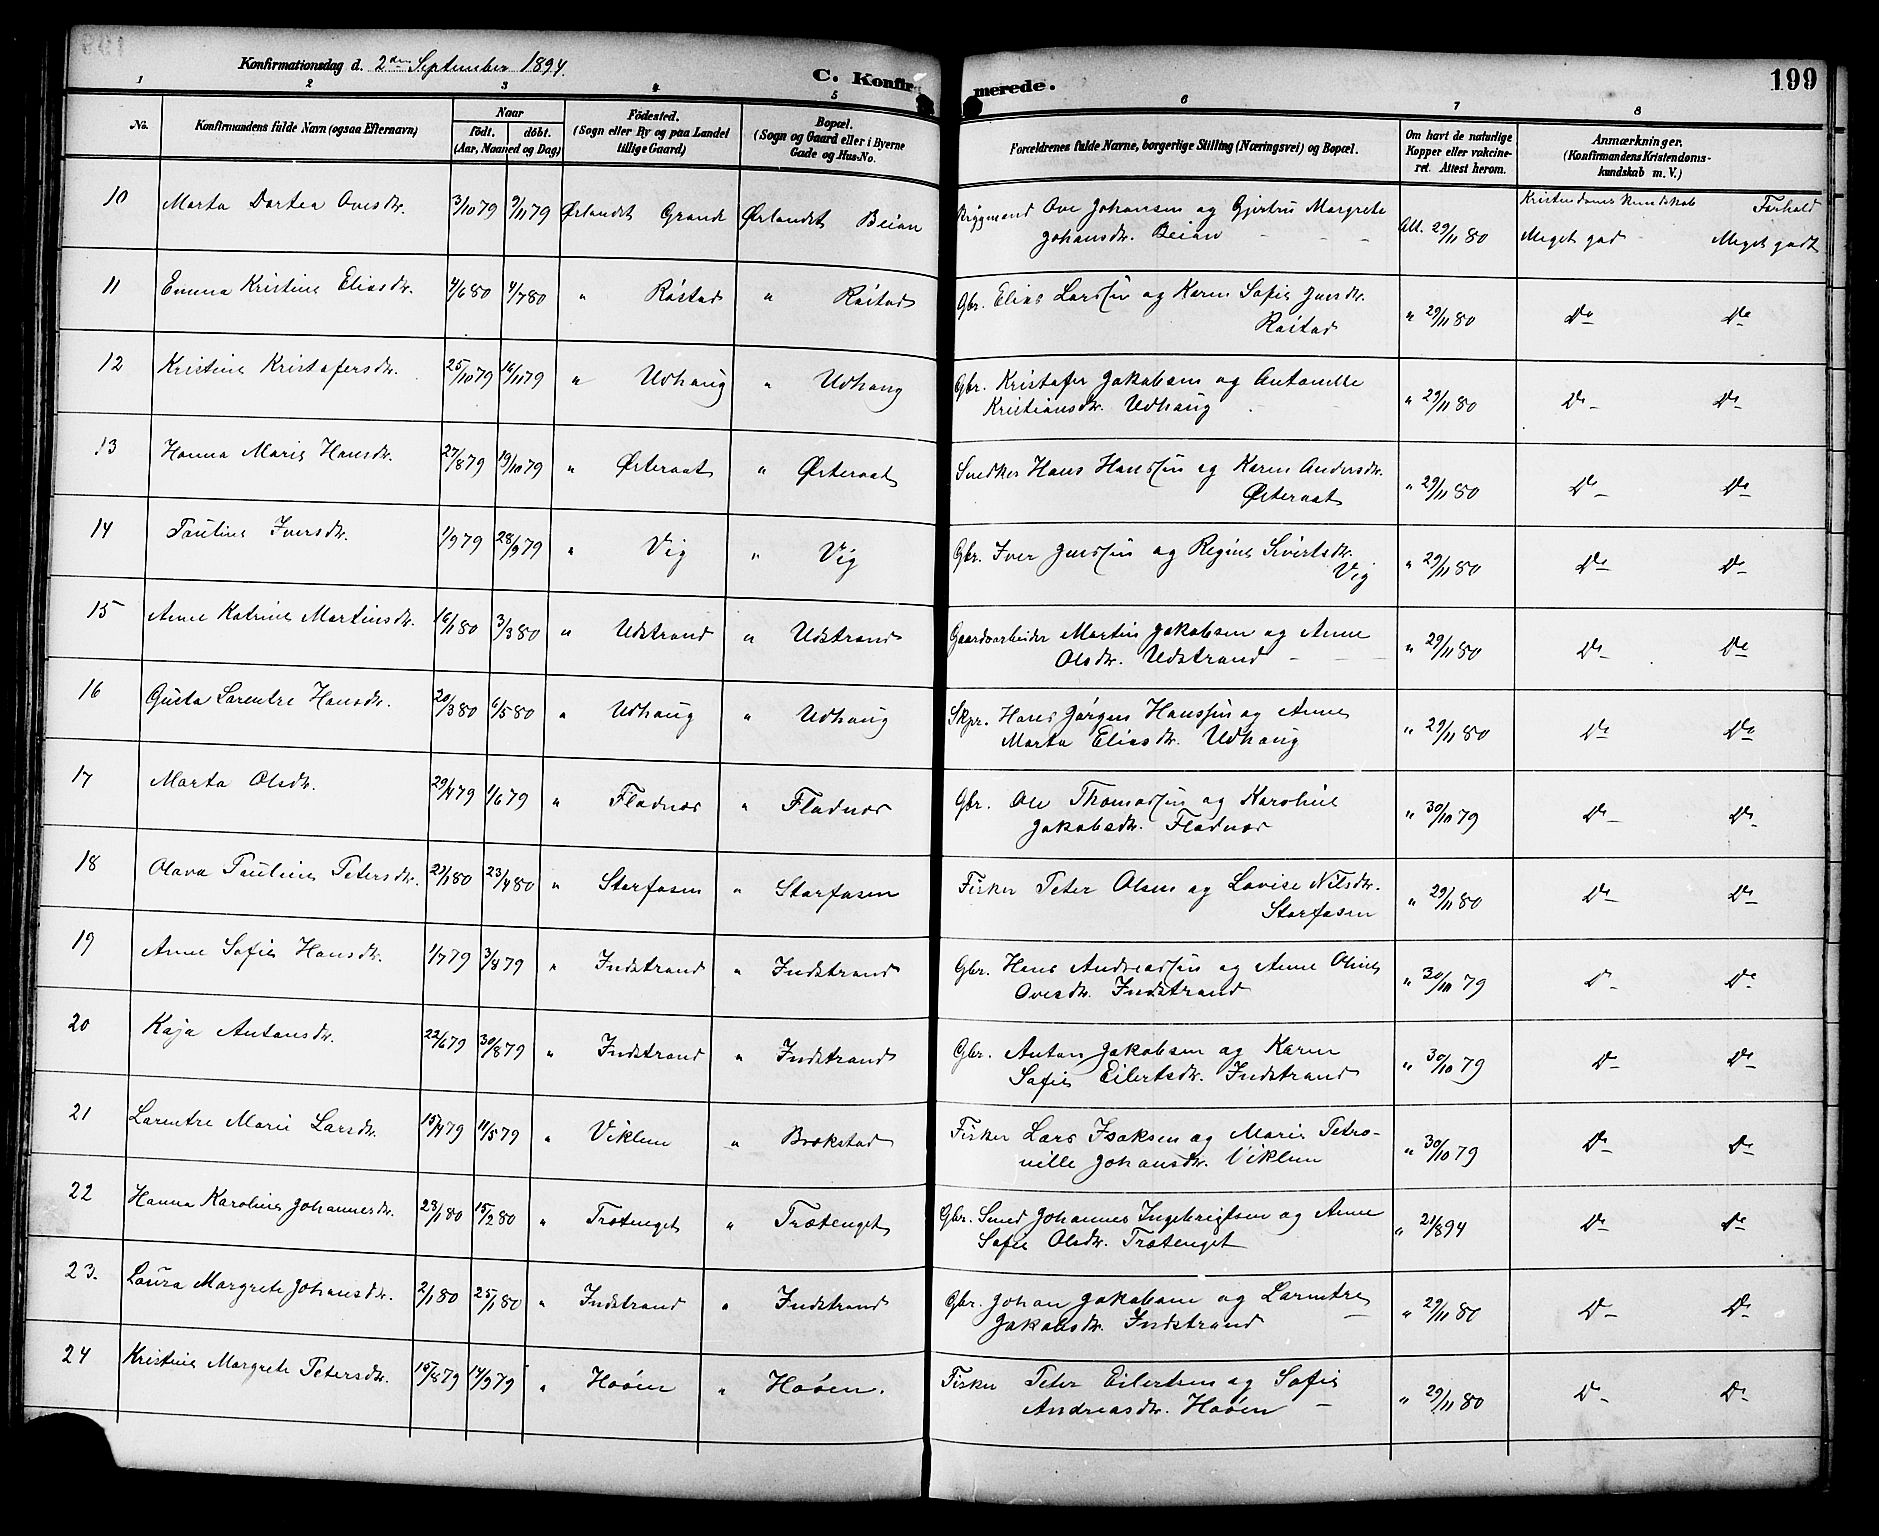 Konfirmationsdag d. 2den September 1894.
C. Konfirmerede.
199
1 2 3 4 5 6 7 8
No. | Konfirmandens fulde Navn (ogsaa Efternavn) | Naar født. døbt. (Aar, Maaned og Dag) | Fødested. (Sogn eller By og paa Landet tillige Gaard) | Bopæl. (Sogn og Gaard eller i Byerne Gade og Hus-No. | Forældrenes fulde Navne, borgerlige Stilling (Næringsvei) og Bopæl. | Om havt de naturlige Kopper eller vakcineret. Attest herom. | Anmærkninger. (Konfirmandens Kristendomskundskab m. V.)
Kristendomskundskab Forhold
10 Marta Dortea Ovesdtr. 3/10 79 9/11 79 Ørlandet Grande Ørlandet Beian Byggmand Ove Johansen og Gjertru Margrete Johansdtr. Beian Att. 29/11 80 Meget god Meget godt
11 Emma Kristine Eliasdtr. 4/6 80 4/7 80 " Røstad " Røstad Gbr. Elias Larssen og Karen Sofie Jensdtr. Røstad " 29/11 80 Do Do
12 Kristine Kristofersdtr. 25/10 79 16/11 79 " Udhaug " Udhaug Gbr. Kristofer Jakobsen og Antonette Kristiansdtr. Udhaug " 29/11 80 Do Do
13 Hanna Marie Hansdtr. 27/8 79 19/10 79 " Østeraat " Østeraat Snedker Hans Hanssen og Karen Andersdtr. Østeraat " 29/11 80 Do Do
14 Pauline Iversdtr. 1/9 79 28/9 79 " Vig " Vig Gbr. Iver Jenssen og Regine Sivertsdtr. Vig " 29/11 80 Do Do
15 Anne Katrine Martinsdtr. 16/1 80 3/3 80 " Udstrand " Udstrand Gaardsarbeider Martin Jakobsen og Anne Olsdtr. Udstrand " 29/11 80 Do Do
16 Gusta Larentze Hansdtr. 20/3 80 6/5 80 " Udhaug " Udhaug Skpr. Hans Jørgen Hanssen og Anne Marta Eliasdtr. Udhaug " 29/11 80 Do Do
17 Marta Olsdtr. 29/4 79 1/6 79 " Fladnes " Fladnes Gbr. Ole Thomassen og Karoline Jakobsdtr. Fladnes " 30/10 79 Do Do
18 Olava Pauline Petersdtr. 23/1 80 23/4 80 " Storfosen " Storfosen Fisker Peter Olsen og Lovise Nilsdtr. Storfosen " 29/11 80 Do Do
19 Anne Sofie Hansdtr. 1/7 79 3/8 79 " Indstrand " Indstrand Gbr. Hans Andreassen og Anne Oline Ovesdtr. Indstrand " 30/10 79 Do Do
20 Kaja Antonsdtr. 22/6 79 30/8 79 " Indstrand " Indstrand Gbr. Anton Jakobsen og Karen Sofie Eilertsdtr. Indstrand " 30/10 79 Do Do
21 Larentze Marie Larsdtr. 15/4 79 11/5 79 " Viklem " Brekstad Fisker Lars Isaksen og Marie Petronille Johansdtr. Viklem " 30/10 79 Do Do
22 Hanna Karoline Johannesdtr. 23/1 80 15/2 80 " Trøtenget " Trøtenget Gbr. Smed Johannes Ingebrigtsen og Anne Sofie Olsdtr. Trøtenget " 21/8 94 Do Do
23. Laura Margrete Johansdtr. 2/1 80 25/1 80 " Indstrand " Indstrand Gbr. Johan Jakobsen og Larentze Jakobsdtr. Indstrand " 29/11 80 Do Do
24 Kristine Margrete Petersdtr. 15/8 79 14/9 79 " Hoøen " Hoøen. Fisker Peter Eilertsen og Sofie Andreasdtr. Hoøen " 29/11 80 Do Do